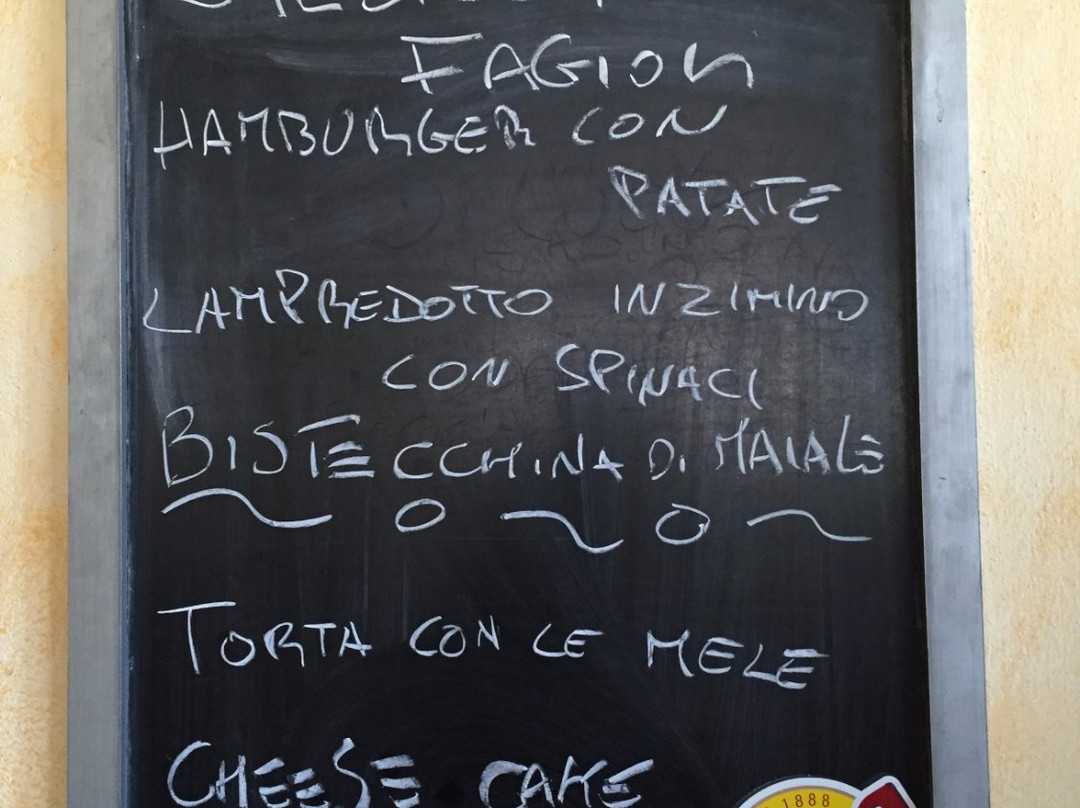 FAGIOLI
HAMBURGER CON
PATATE
LAMPREDOTTO INZIMINO
CON SPINACI
BISTECCHINA DI MAIALE
TORTA CON LE MELE
CHEESE CAKE
1888